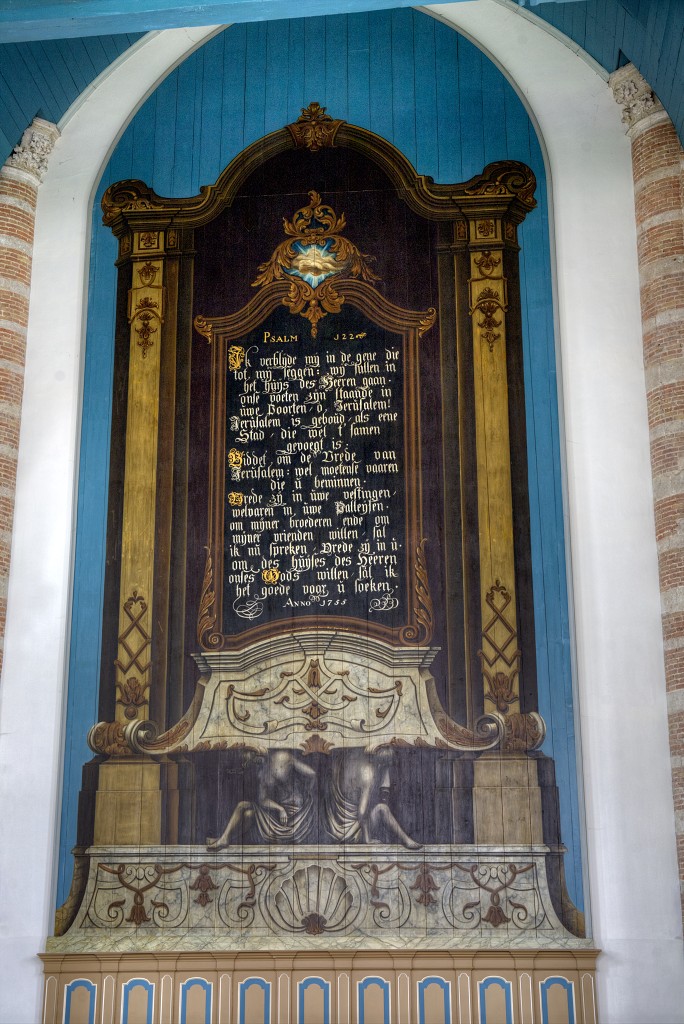 PSALM 122
Ik verblyde my in de gene die
tot my seggen: wy sullen in
het huys des Heeren gaan.
onse voeten zyn staande in
uwe Poorten, o, Jerusalem!
Jerusalem is geboud, als eene
Stad, die wel t'samen
gevoegt is:
Biddet om de Vrede van
Jerusalem: wel moetense vaaren
die u beminnen.
Vrede zy in uwe vestingen,
welvaren in uwe Palleysen.
om myner broederen ende om
myner vrienden willen, sal
ik nu spreken, Vrede zy in u.
om des huyses des Heeren
onses Gods willen, sal ik
het goede voor u soeken.
ANNO 1755